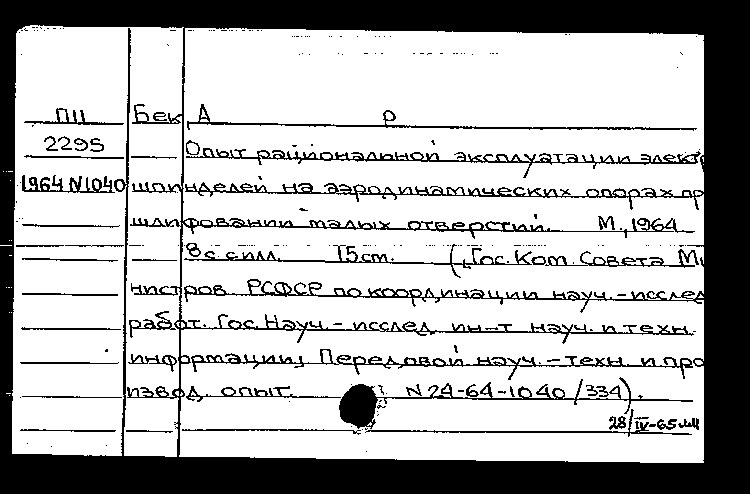 ПШ Бек А Р
2295 Опыт рациональной эксплуатации элект
1964 N1040 шпинделей на аэродинамических опорах пр
шлифовании малых отверстий. М., 1964
8 с. с илл. 15 cm. (Гос. Ком. Совета Ми
нистров РСФСР по координации науч.-исслед
работ. Гос. Науч.-исслед. ин-т науч. и техн.
информации, Передовой науч.-техн. и про
извод. опыт. N 24-64-1040/334).
28/IV-65